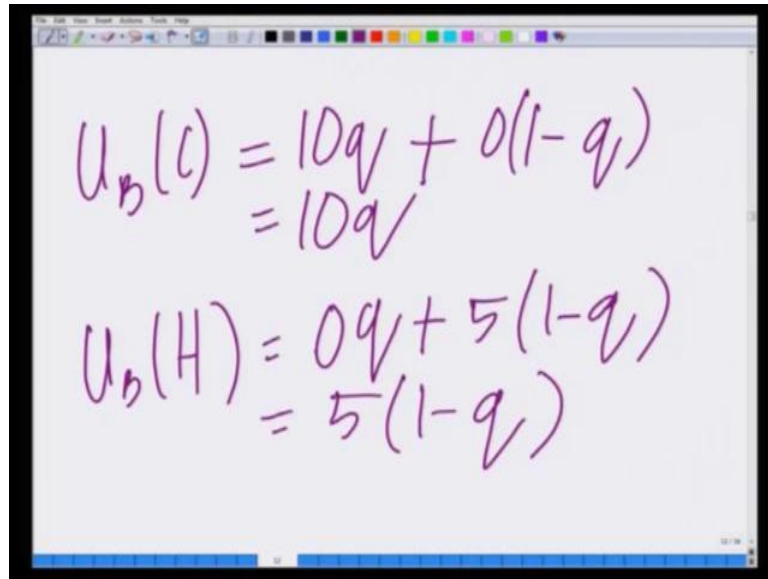 File Edit View Insert Actions Tools Help
U_B(C) = 10q + 0(1-q)
= 10q
U_B(H) = 0q + 5(1-q)
= 5(1-q)